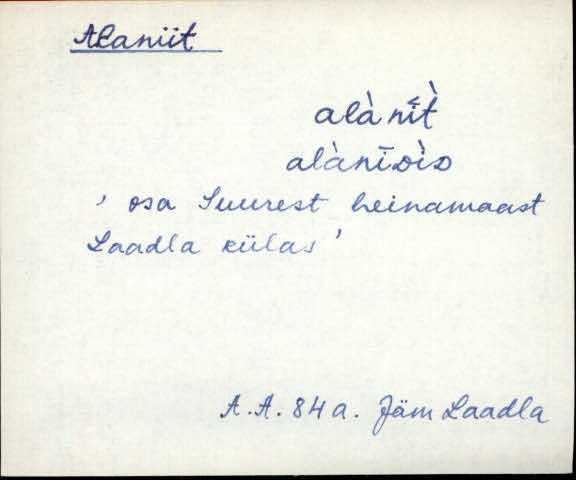 Alaniit
alànī̀t̀
alànīᴅìᴅ
' osa Suurest heinamaast
Laadla külas '
A.A. 84 a. Jäm Laadla